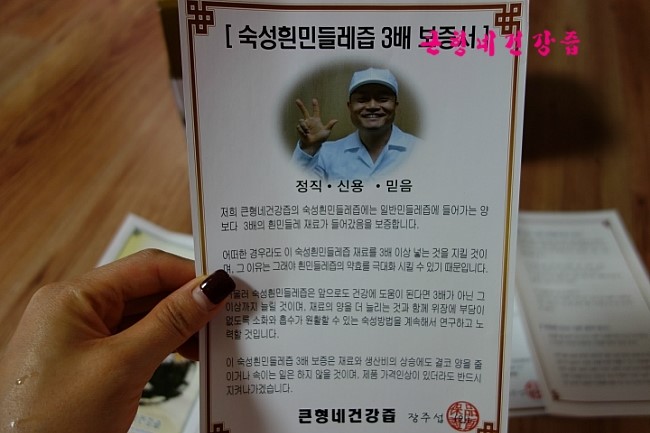 [ 숙성흰민들레즙 3배 보증서 ]
큰형네건강즙
정직 · 신용 · 믿음
저희 큰형네건강즙의 숙성흰민들레즙에는 일반민들레즙에 들어가는 양
보다 3배의 흰민들레 재료가 들어갔음을 보증합니다.
어떠한 경우라도 이 숙성흰민들레즙 재료를 3배 이상 넣는 것을 지킬 것이
며, 그 이유는 그래야 흰민들레즙의 약효를 극대화 시킬 수 있기 때문입니다.
숙성흰민들레즙은 앞으로도 건강에 도움이 된다면 3배가 아닌 그
이상까지 늘릴 것이며, 재료의 양을 더 늘리는 것과 함께 위장에 부담이
없도록 소화와 흡수가 원활할 수 있는 숙성방법을 계속해서 연구하고 노
력할 것입니다.
이 숙성흰민들레즙 3배 보증은 재료와 생산비의 상승에도 결코 양을 줄
이거나 속이는 일은 하지 않을 것이며, 제품 가격인상이 있더라도 반드시
지켜나가겠습니다.
큰형네건강즙 장주섭